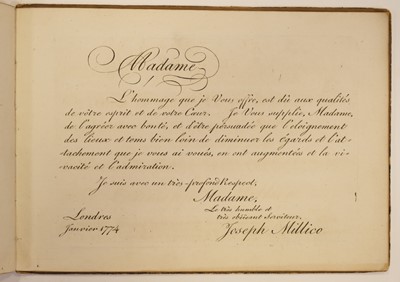 Madame
L'hommage que je Vous offre, est dû aux qualités
de vôtre esprit et de votre Cœur. Je Vous supplie, Madame,
de l'agréer avec bonté, et d'être persuadée que l'eloignement
des lieux et tems bien loin de diminuer les égards et l'at-
tachement que je vous ai voués, en ont augmentés et la vi-
vacité et l'admiration.
Je suis avec un très-profond Respect,
Madame,
Le très humble et
très obéissant Serviteur,
Londres
Janvier 1774
Joseph Millico